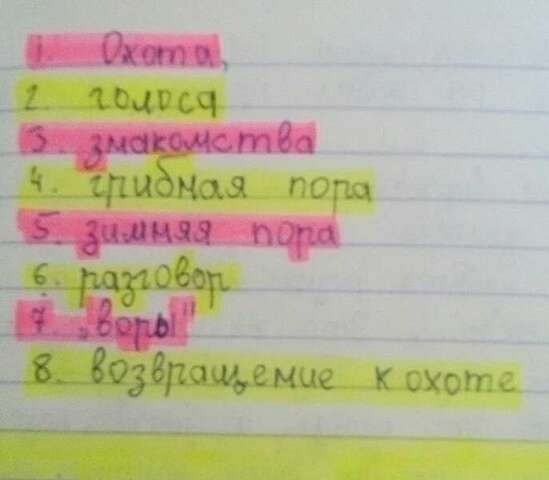 1. Охота,
2. голоса
3. знакомства
4. грибная пора
5. зимняя пора
6. разговор
7. „воры"
8. возвращение к охоте